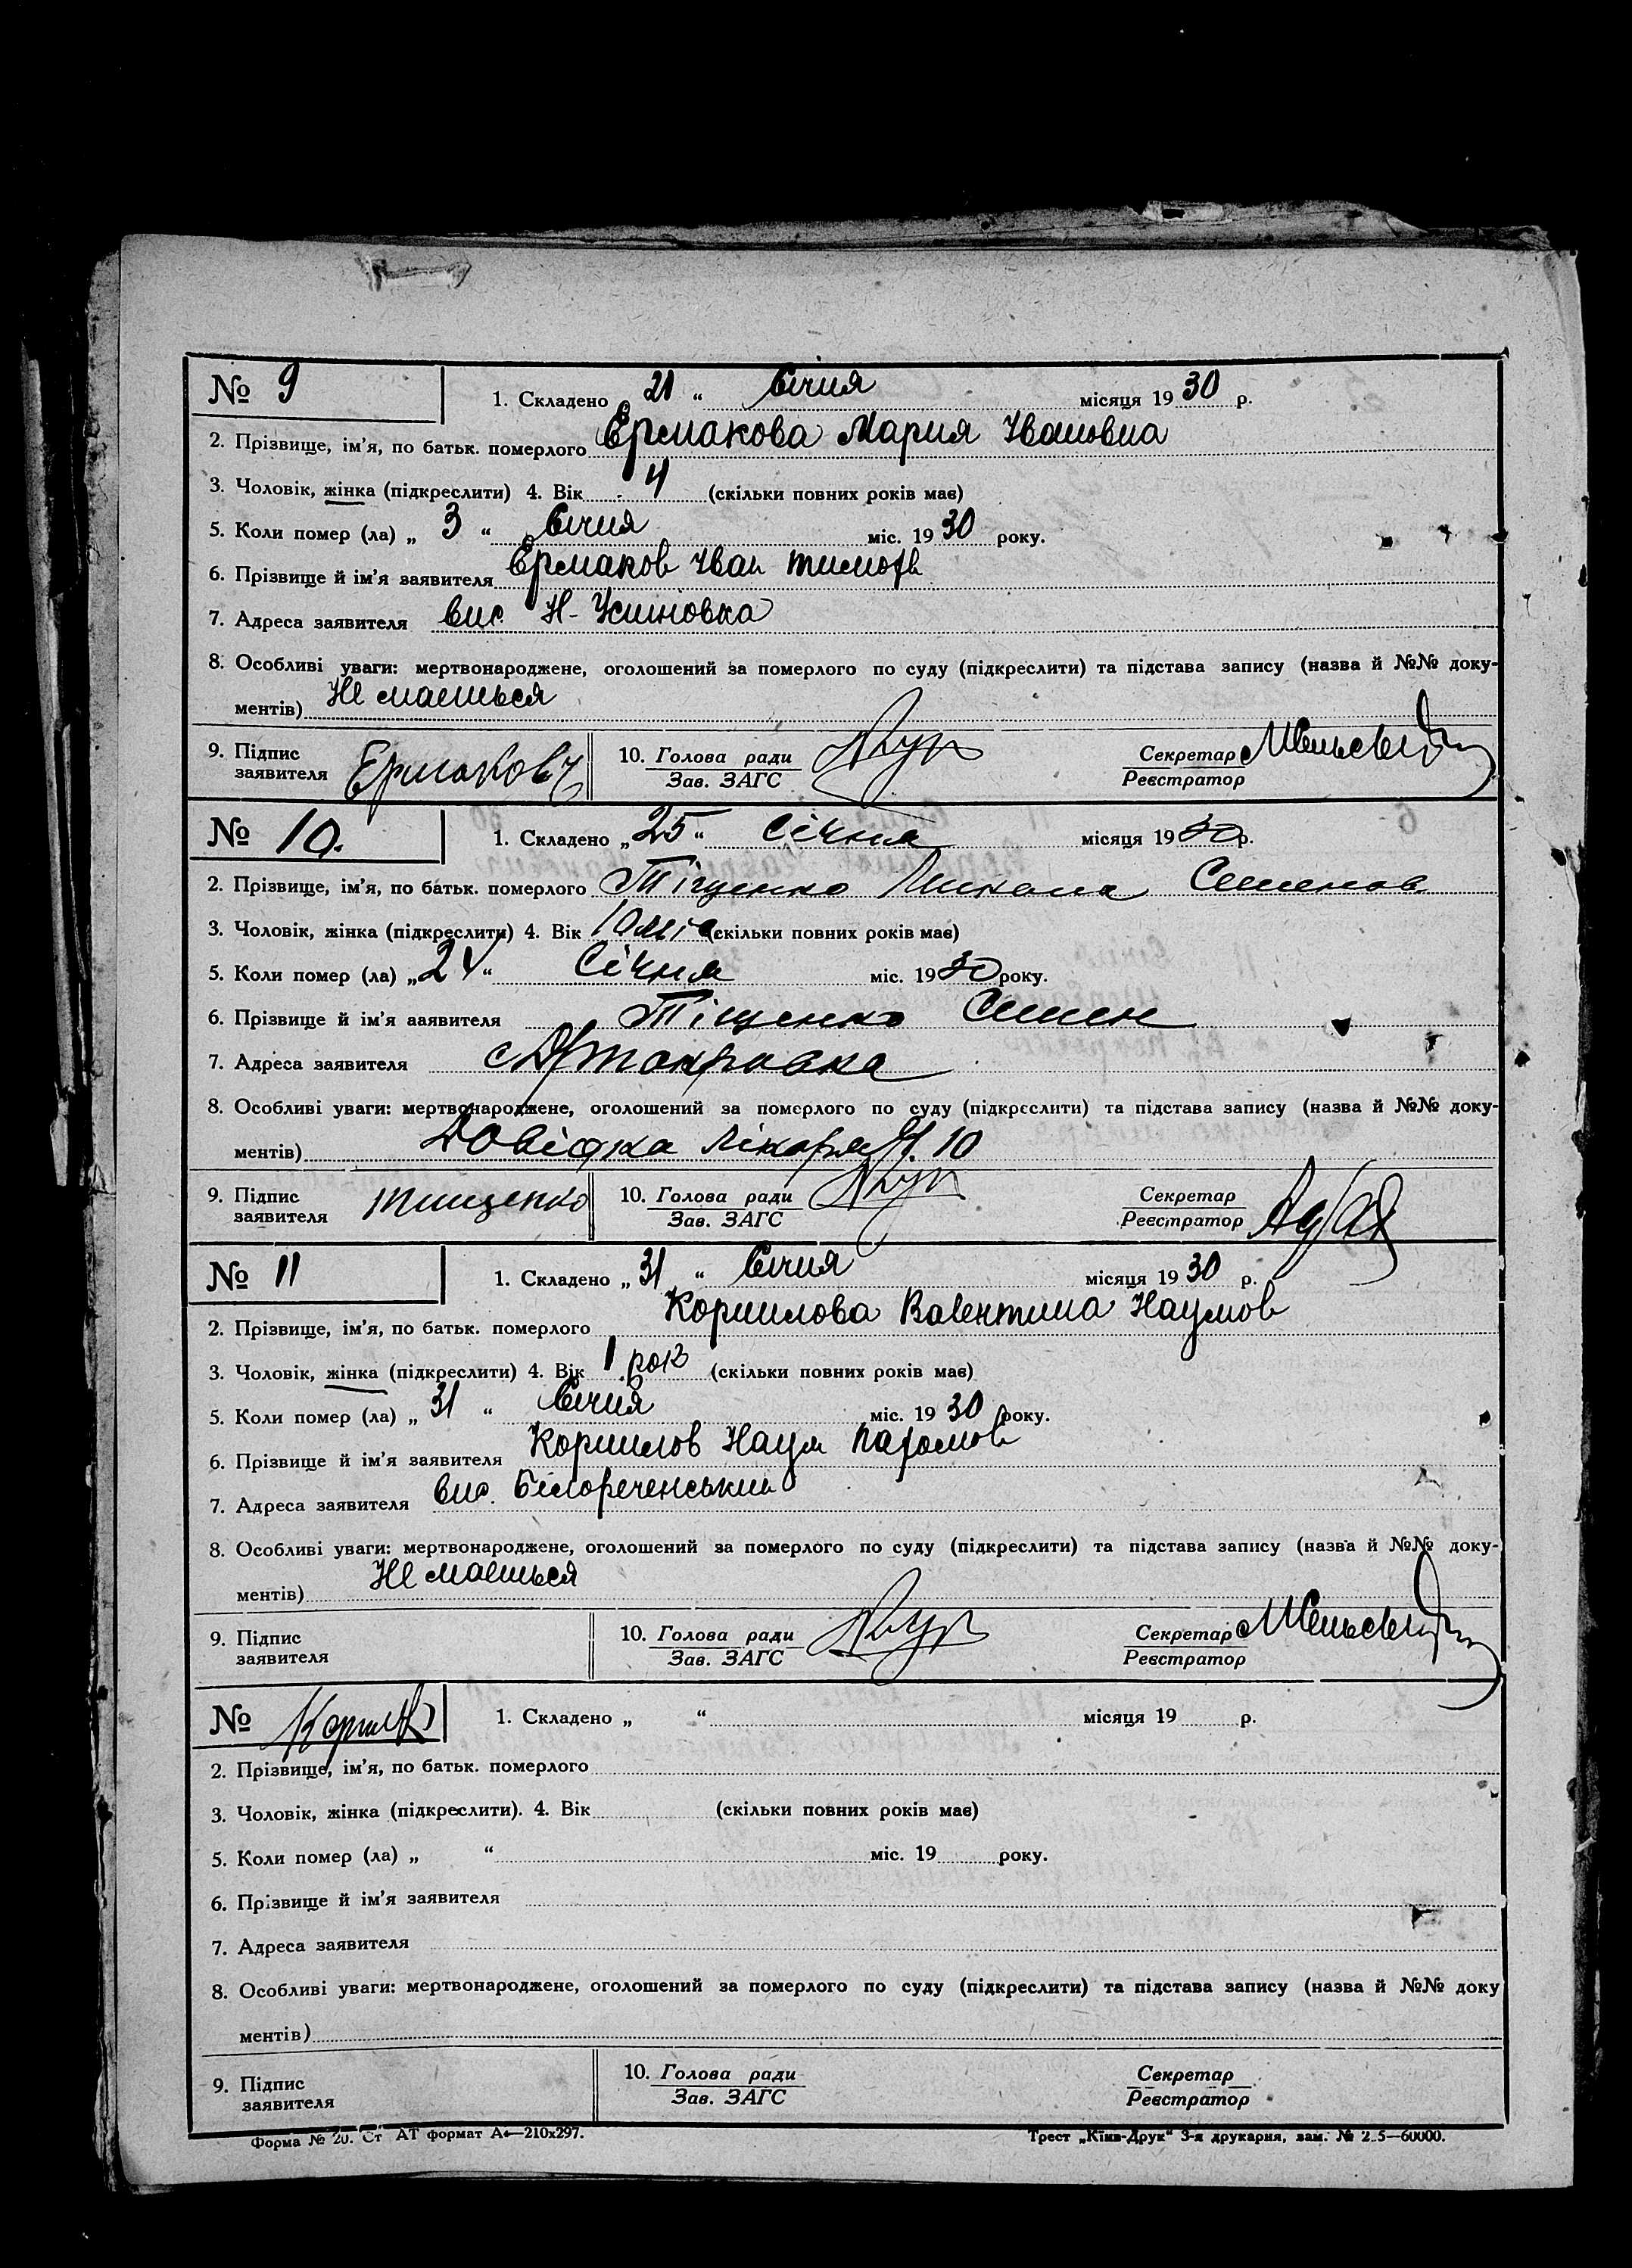 № 9 1. Складено 21 “ Січня місяця 1930 р.
2. Прізвище, ім’я, по батьк. померлого Єрмакова Мария Ивановна
3. Чоловік, жінка (підкреслити) 4. Вік 4 (скільки повних років має)
5. Коли помер (ла) „ 3 “ Січня міс. 1930 року.
6. Прізвище й ім’я заявителя Єрмаков Иван
7. Адреса заявителя вис.
8. Особливі уваги: мертвонароджене, оголошений за померлого по суду (підкреслити) та підстава запису (назва й №№ доку-
ментів) Не маеться
9. Підпис 10. Голова ради Секретар
заявителя Зав. ЗАГС Реєстратор
№ 10. 1. Складено „25“ Січня місяця 1930р.
2. Прізвище, ім’я, по батьк. померлого Тіщенко Микола Семенов
3. Чоловік, жінка (підкреслити) 4. Вік 10 (скільки повних років має)
5. Коли помер (ла) „24“ Січня міс. 1930 року.
6. Прізвище й ім’я ааявителя Тіщенко Семен
7. Адреса заявителя
8. Особливі уваги: мертвонароджене, оголошений за померлого по суду (підкреслити) та підстава запису (назва й №№ доку-
ментів) Довідка лікаря 10
9. Підпис Тищенко 10. Голова ради Секретар
заявителя Зав. ЗАГС Реєстратор
№ 11 1. Складено „ 31 “ Січня місяця 1930 р.
2. Прізвище, ім’я, по батьк. померлого Корнилова Валентина Наумов
3. Чоловік, жінка (підкреслити) 4. Вік 1 рок (скільки повних років має)
5. Коли помер (ла) „ 31 “ Січня міс. 1930 року.
6. Прізвище й ім’я заявителя Корнилов Наум
7. Адреса заявителя вис. Білореченський
8. Особливі уваги: мертвонароджене, оголошений за померлого по суду (підкреслити) та підстава запису (назва й №№ доку-
ментів) Не маеться
9. Підпис 10. Голова ради Секретар
заявителя Зав. ЗАГС Реєстратор
№ 1. Складено „ “ місяця 19 р.
2. Прізвище, ім’я, по батьк. померлого
3. Чоловік, жінка (підкреслити). 4. Вік (скільки повних років має)
5. Коли помер (ла) „ “ міс. 19 року.
6. Прізвище й ім’я заявителя
7. Адреса заявителя
8. Особливі уваги: мертвонароджене, оголошений за померлого по суду (підкреслити) та підстава запису (назва й №№ доку
ментів)
9. Підпис 10. Голова ради Секретар
заявителя Зав. ЗАГС Реєстратор
Форма № 20. Ст АТ формат А4—210х297. Трест „Київ-Друк“ 3-я друкарня, зам. №